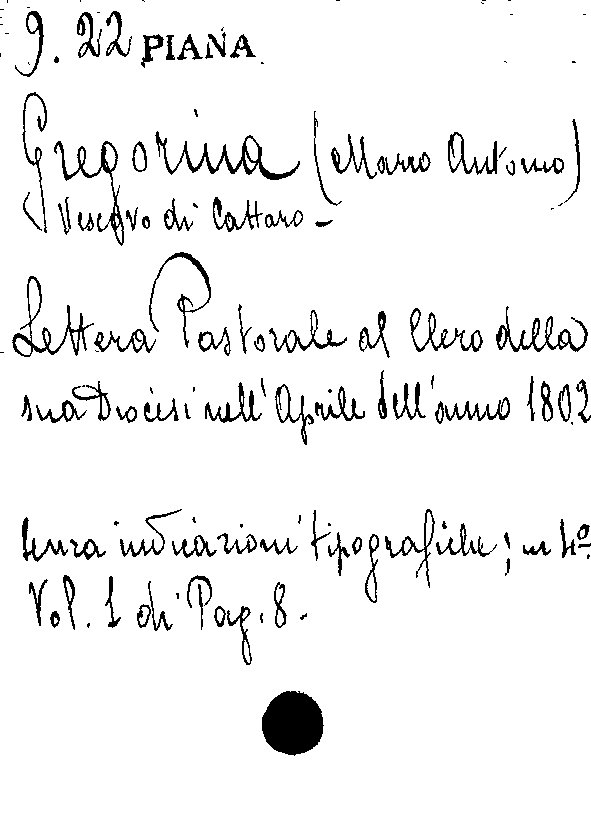 9. 22 PIANA
Gregorina (Marco Antonio)
Vescovo di Cattaro -
Lettera Pastorale al Clero della
sua Diocesi nell' Aprile dell'anno 1802
senza indicazioni tipografiche; in 4º
Vol. 1 di Pag. 8.